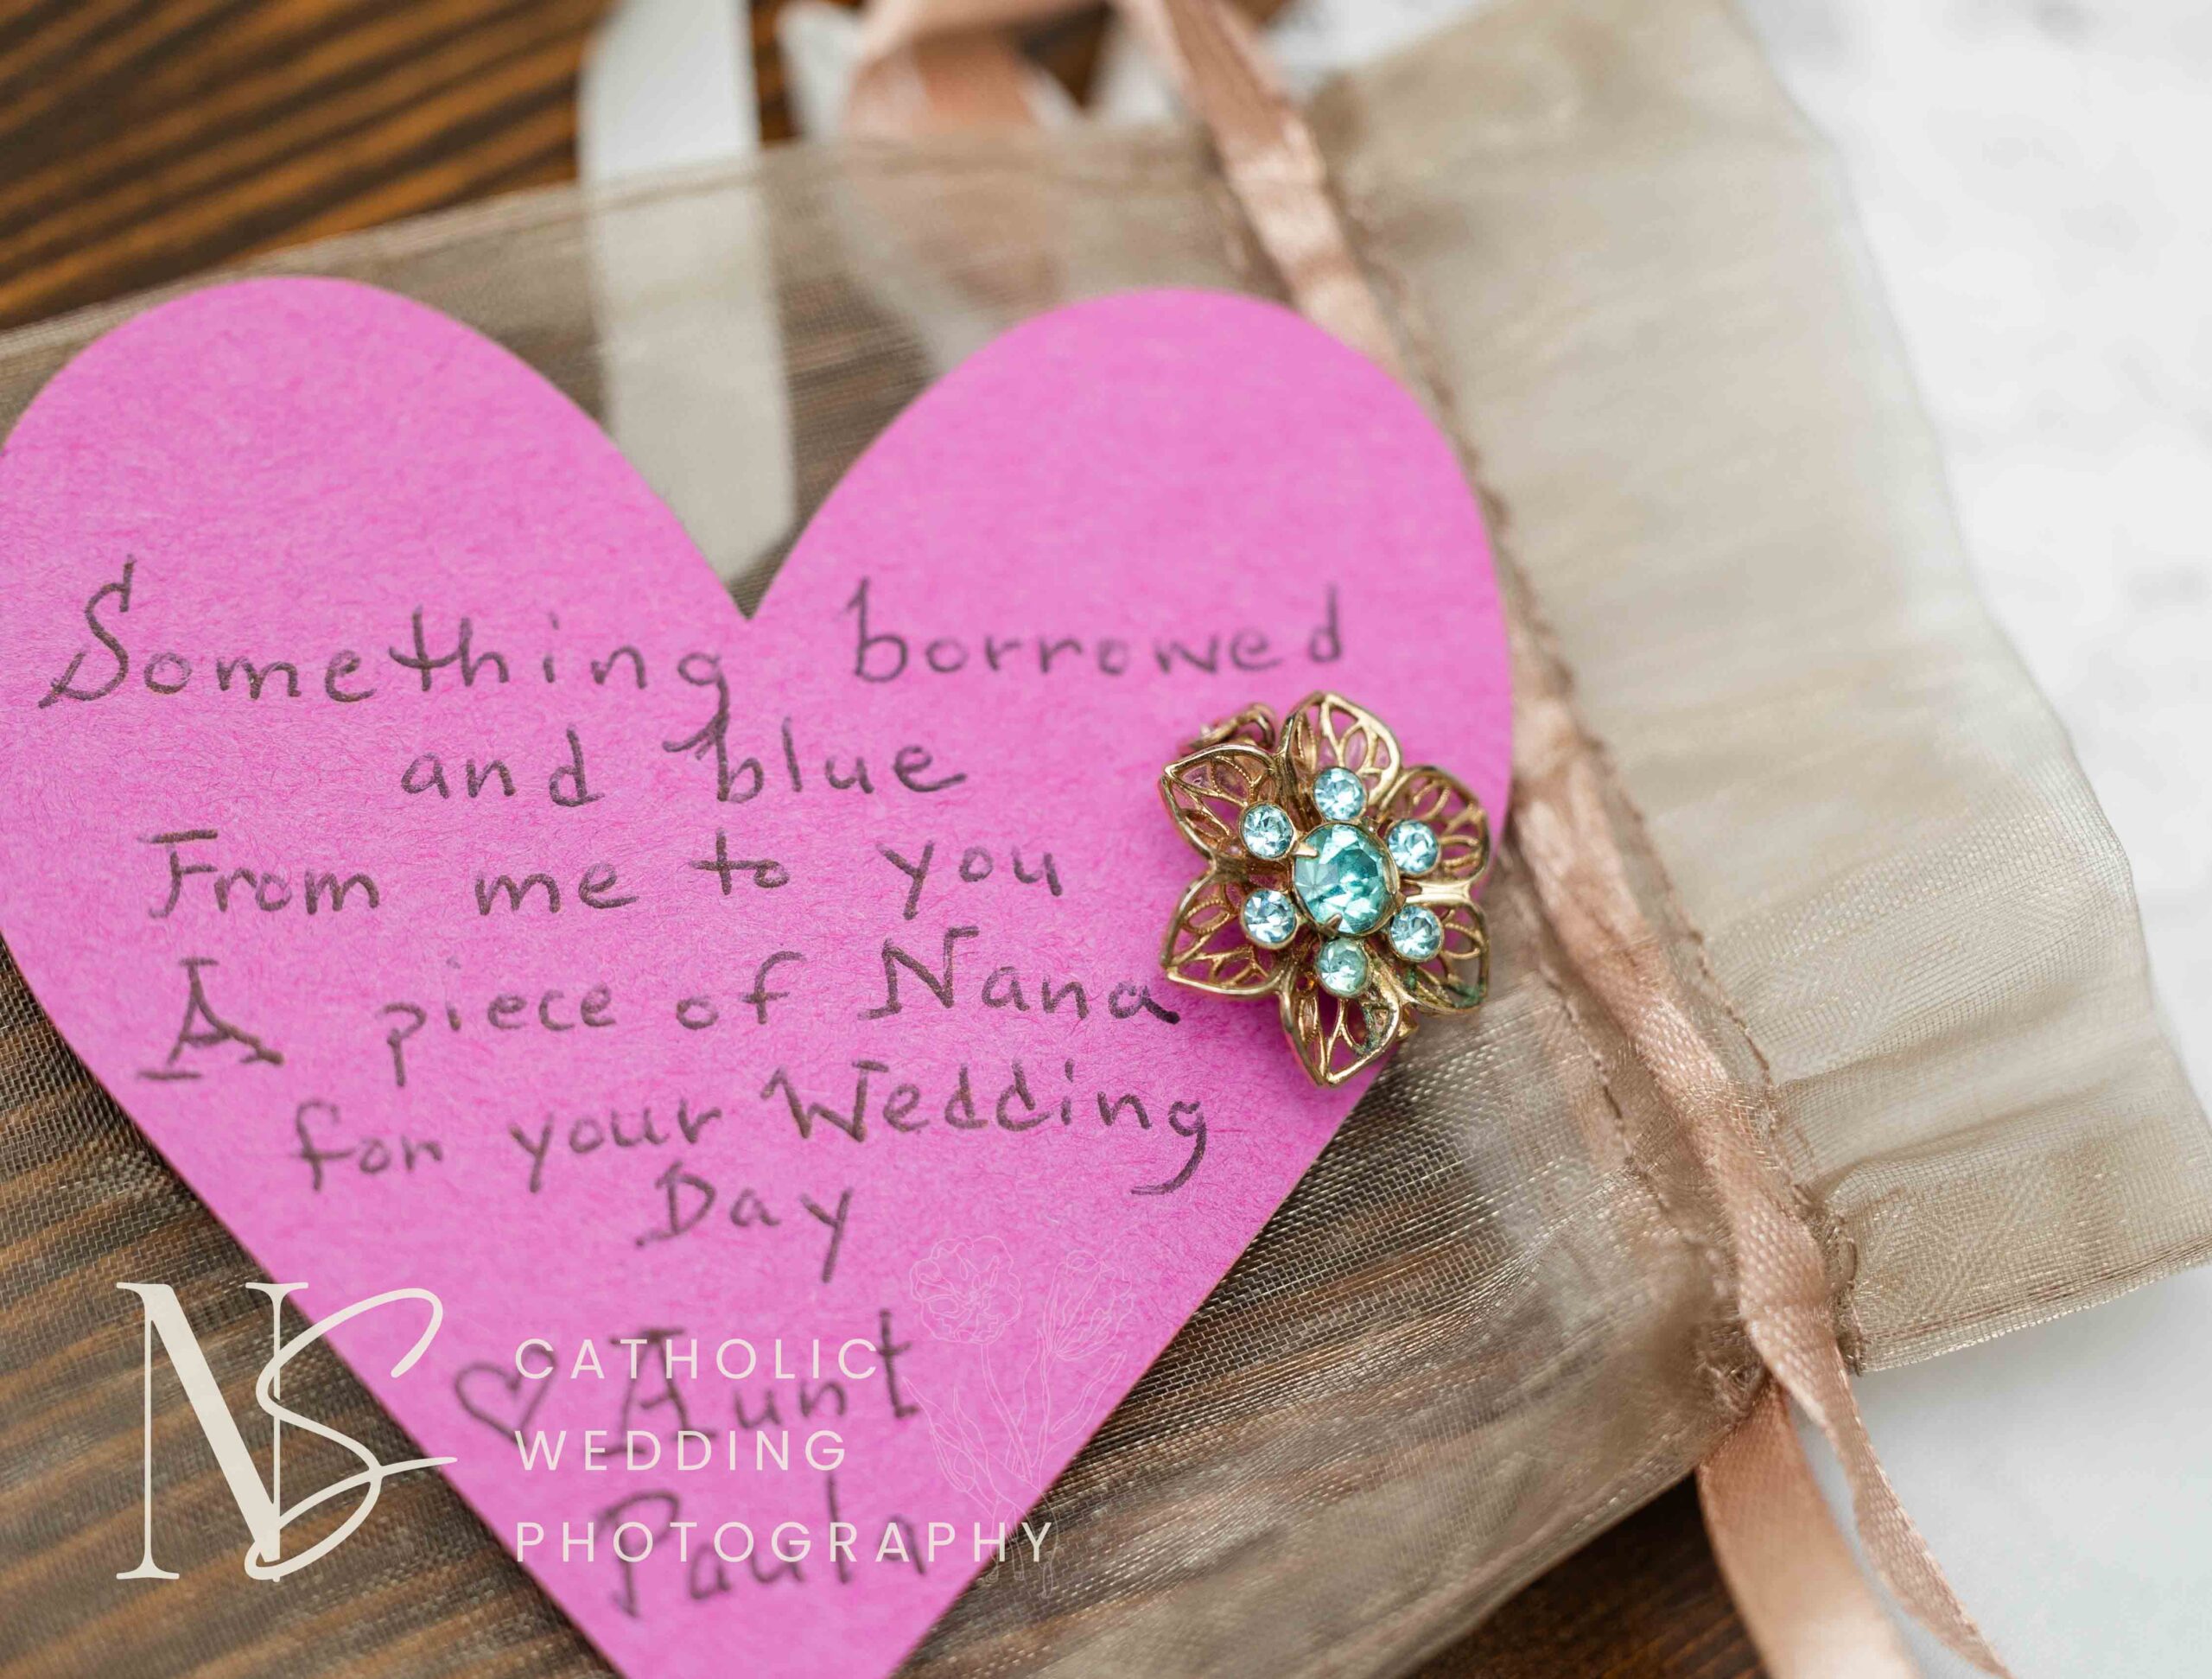 Something borrowed
and blue
From me to you
A piece of Nana
for your Wedding
Day
♡ Aunt
Paula
NS
CATHOLIC
WEDDING
PHOTOGRAPHY